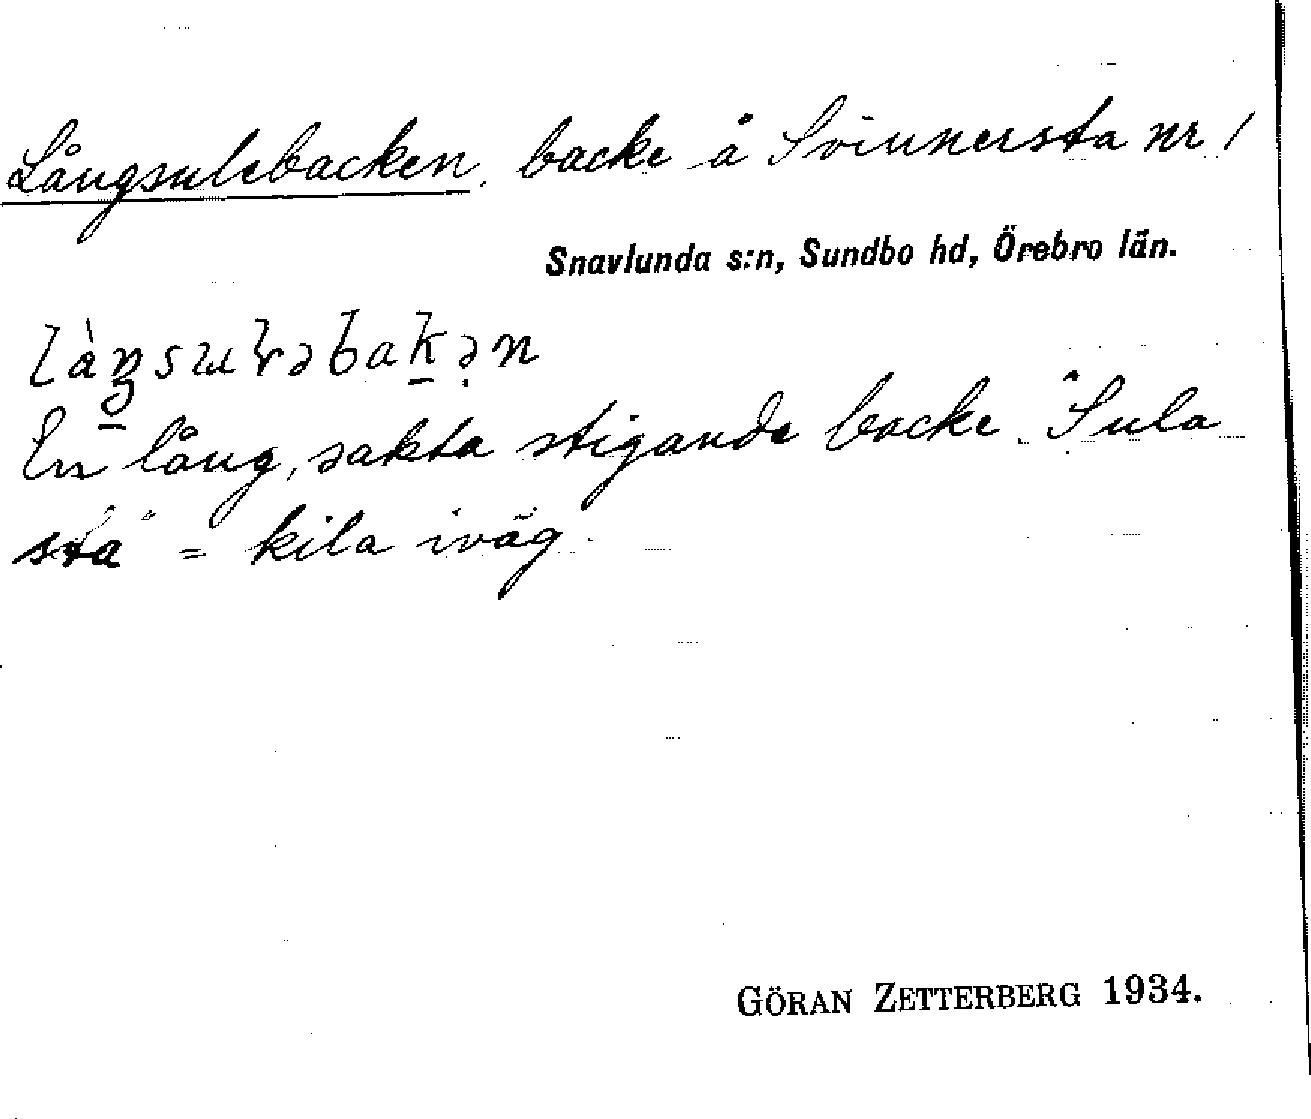 Långsulebacken, backe å Svinnersta nr 1
Snavlunda s:n, Sundbo hd, Örebro län.
En lång, sakta stigande backe. "Sula
sta" = kila iväg.
GÖRAN ZETTERBERG 1934.